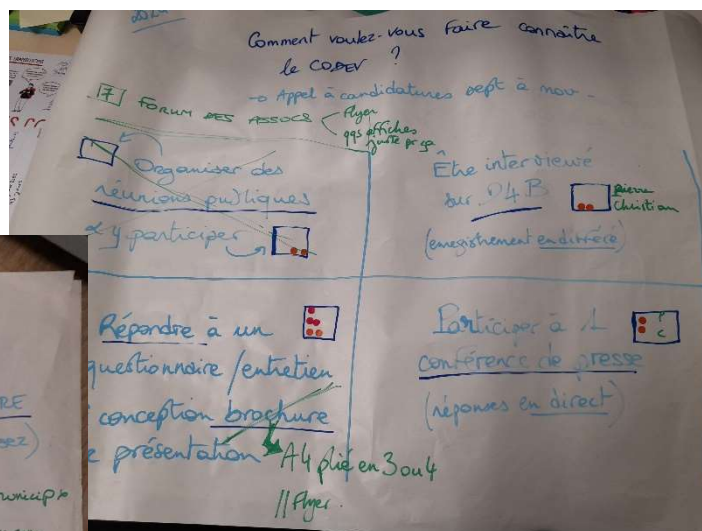 Comment voulez-vous faire connaître
le CODEV ?
→ Appel à candidatures sept à nov -
7 FORUM DES ASSOCS
flyer
qqs affiches
juste prça
Organiser des
réunions publiques
& y participer
Être interviewé
sur D4B
Pierre
Christian
(enregistrement en différé)
Répondre à un
questionnaire/entretien
conception brochure
présentation
A4 plié en 3 ou 4
// flyer.
Participer à 1
P
C
conférence de presse
(réponses en direct)